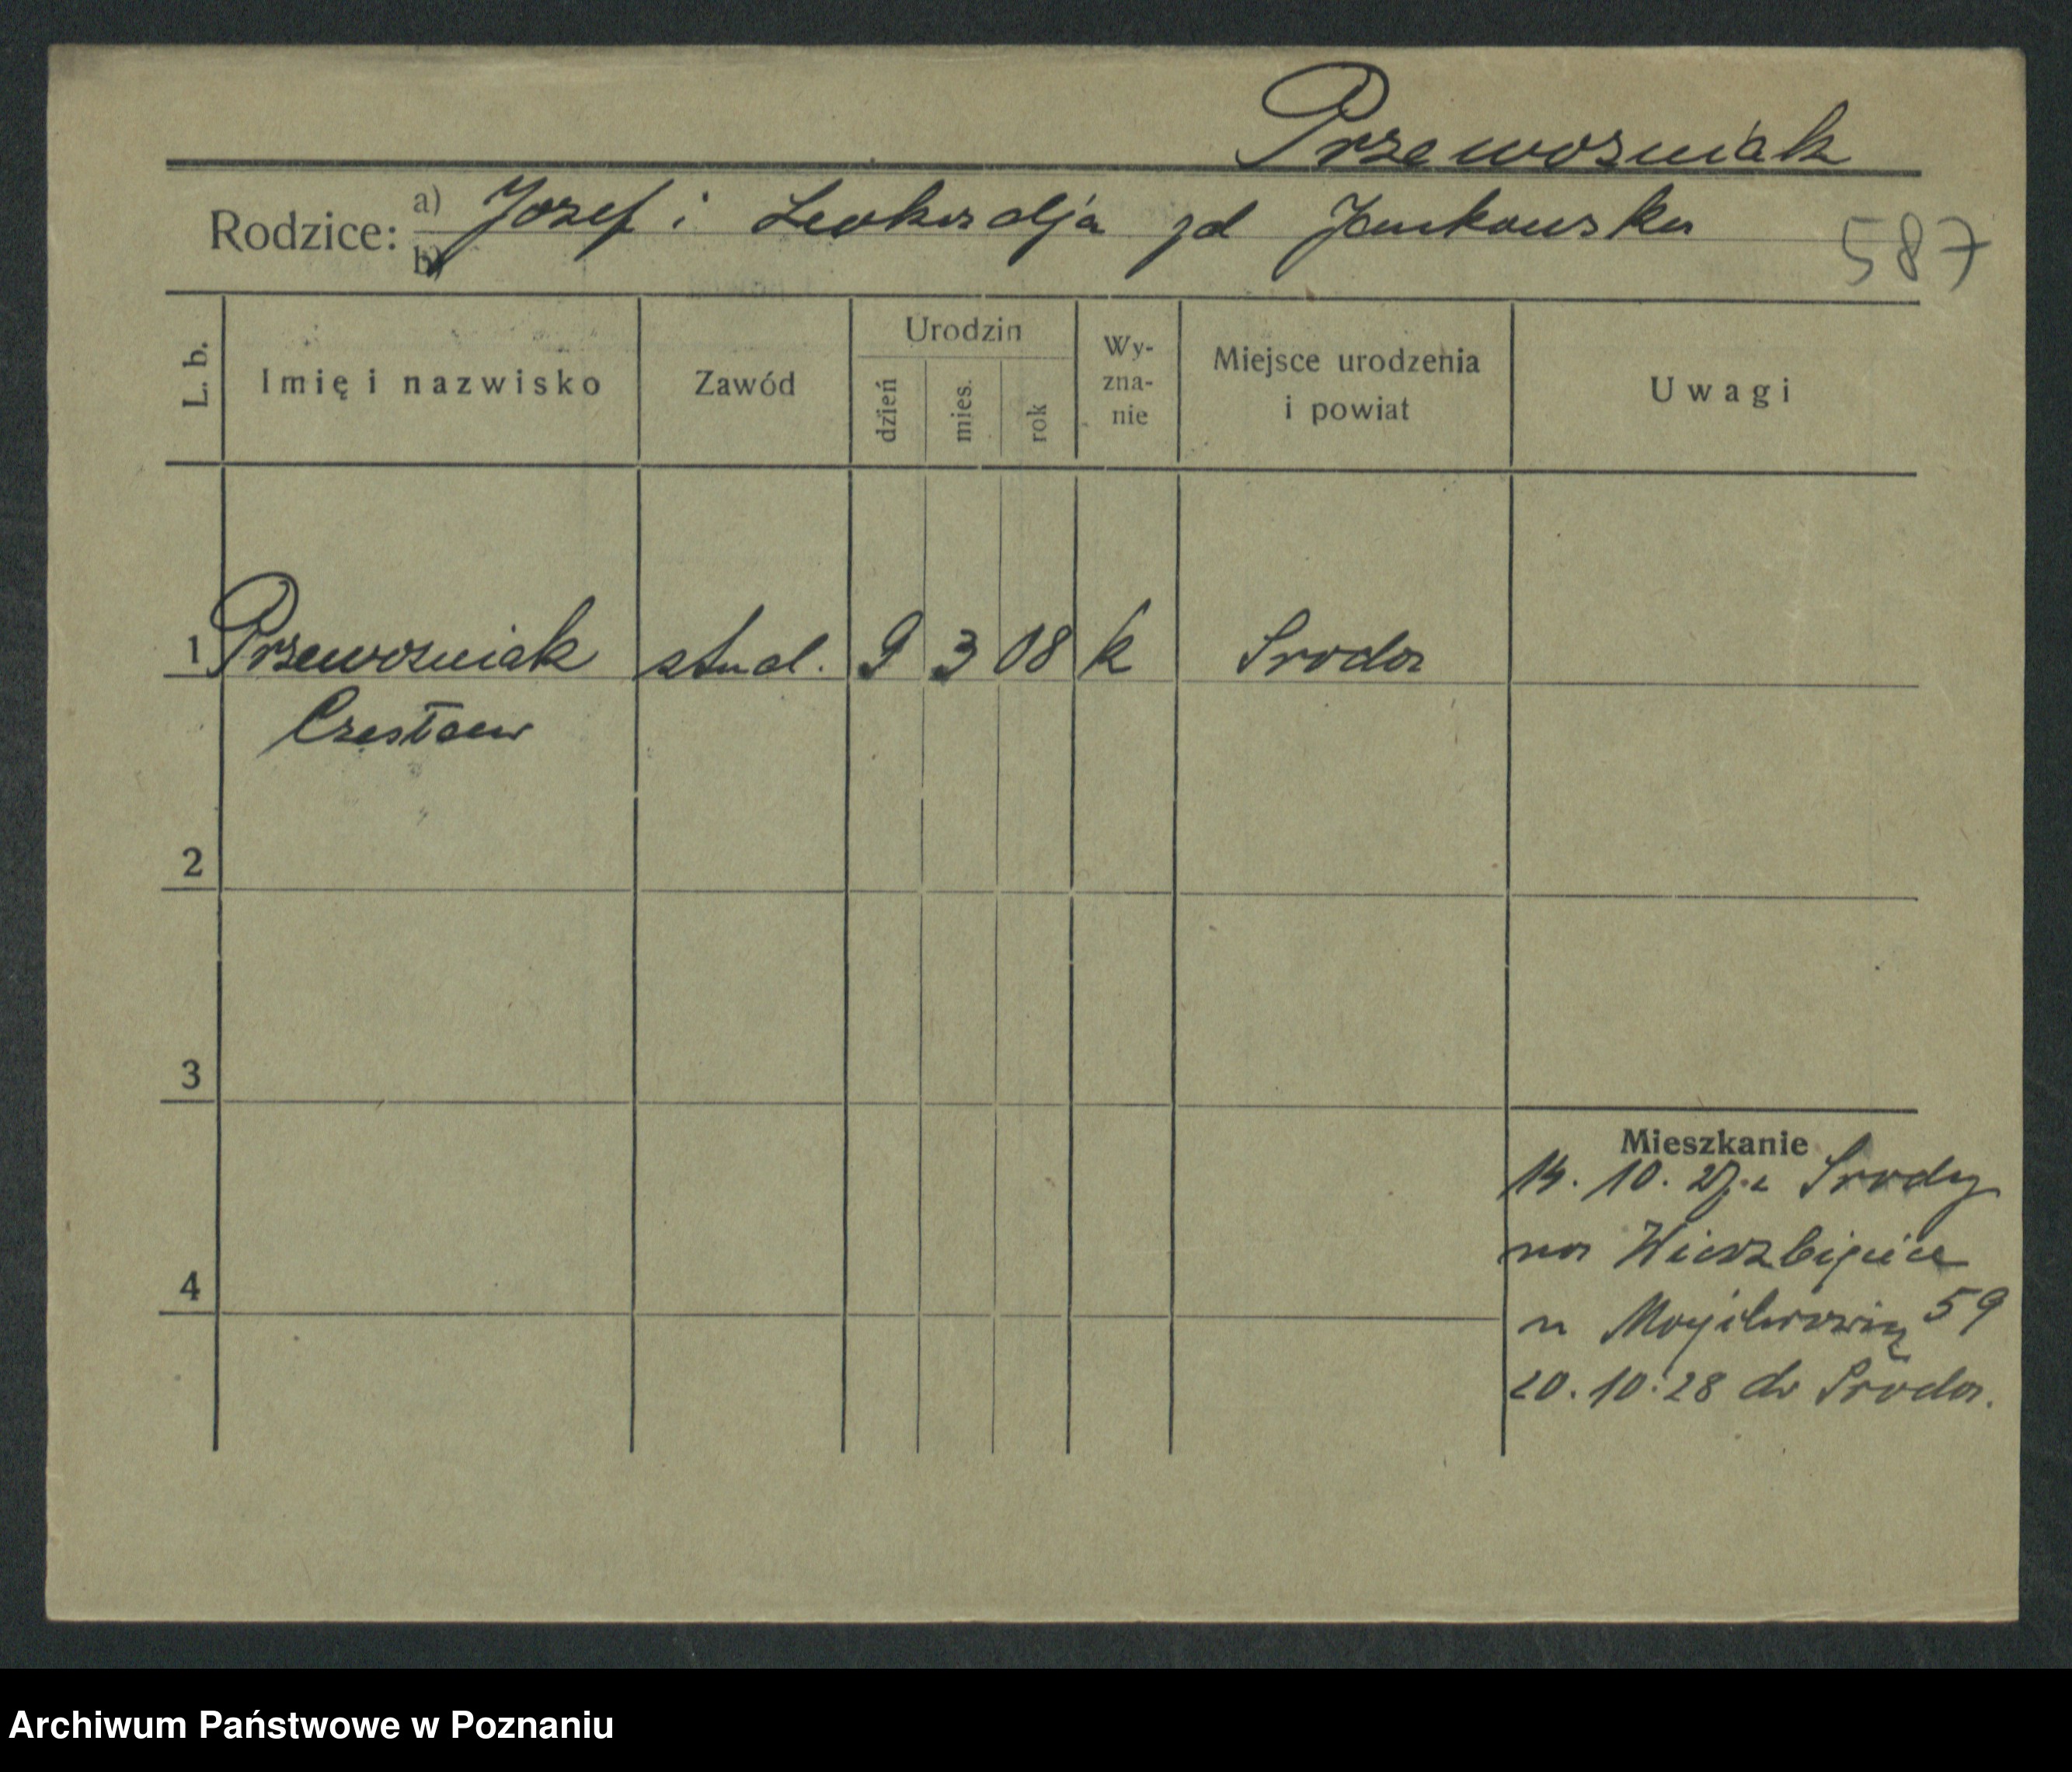 Przewozniak
Rodzice: a) Jozef i Leokadja zd Jankowska
b)
587
L. b.
Imię i nazwisko
Zawód
Urodzin
dzień
mies.
rok
Wy-
zna-
nie
Miejsce urodzenia
i powiat
Uwagi
1 Przewozniak stud. 9 3 08 k Sroda
Czesław
2
3
4
Mieszkanie
14. 10. 27. z Srody
na Wierzbięcice
u 59
20. 10. 28 do Sroda.
Archiwum Państwowe w Poznaniu